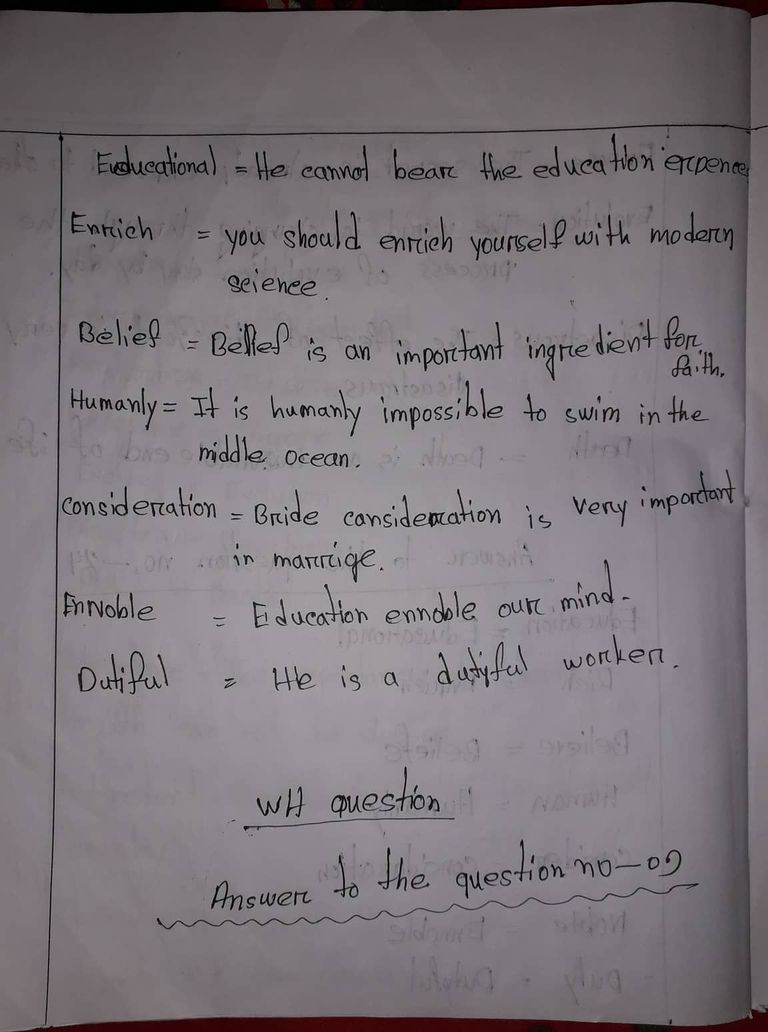 Euducational = He cannot bear the education erpence
Enrich = you should enrich yourself with modern
science.
Belief = Belief is an important ingredient for
faith.
Humanly = It is humanly impossible to swim in the
middle ocean.
consideration = Bride consideration is very important
in marrige.
Ennoble = Education ennoble our mind.
Dutiful = He is a dutiful worker.
WH question
Answer to the question no-09